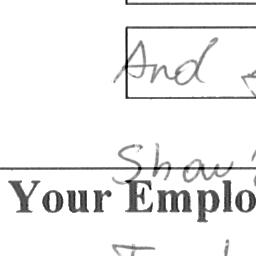 And
Show
Your Emplo